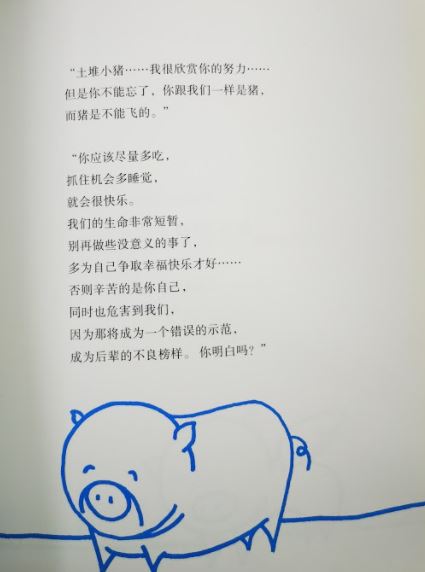 “土堆小猪……我很欣赏你的努力……
但是你不能忘了，你跟我们一样是猪，
而猪是不能飞的。”
“你应该尽量多吃，
抓住机会多睡觉，
就会很快乐。
我们的生命非常短暂，
别再做些没意义的事了，
多为自己争取幸福快乐才好……
否则辛苦的是你自己，
同时也危害到我们，
因为那将成为一个错误的示范，
成为后辈的不良榜样。你明白吗？”